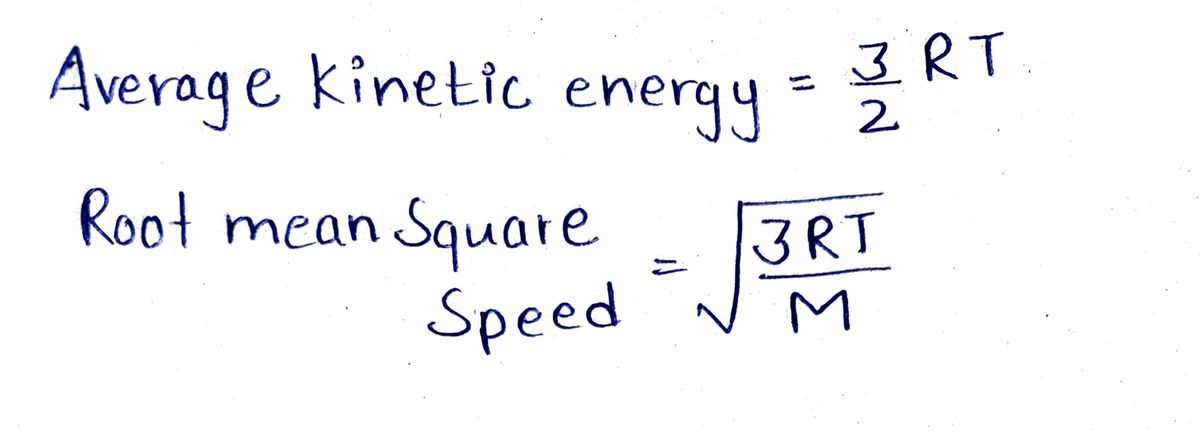 Average kinetic energy = 3/2 RT
Root mean Square
Speed = √(3RT/M)